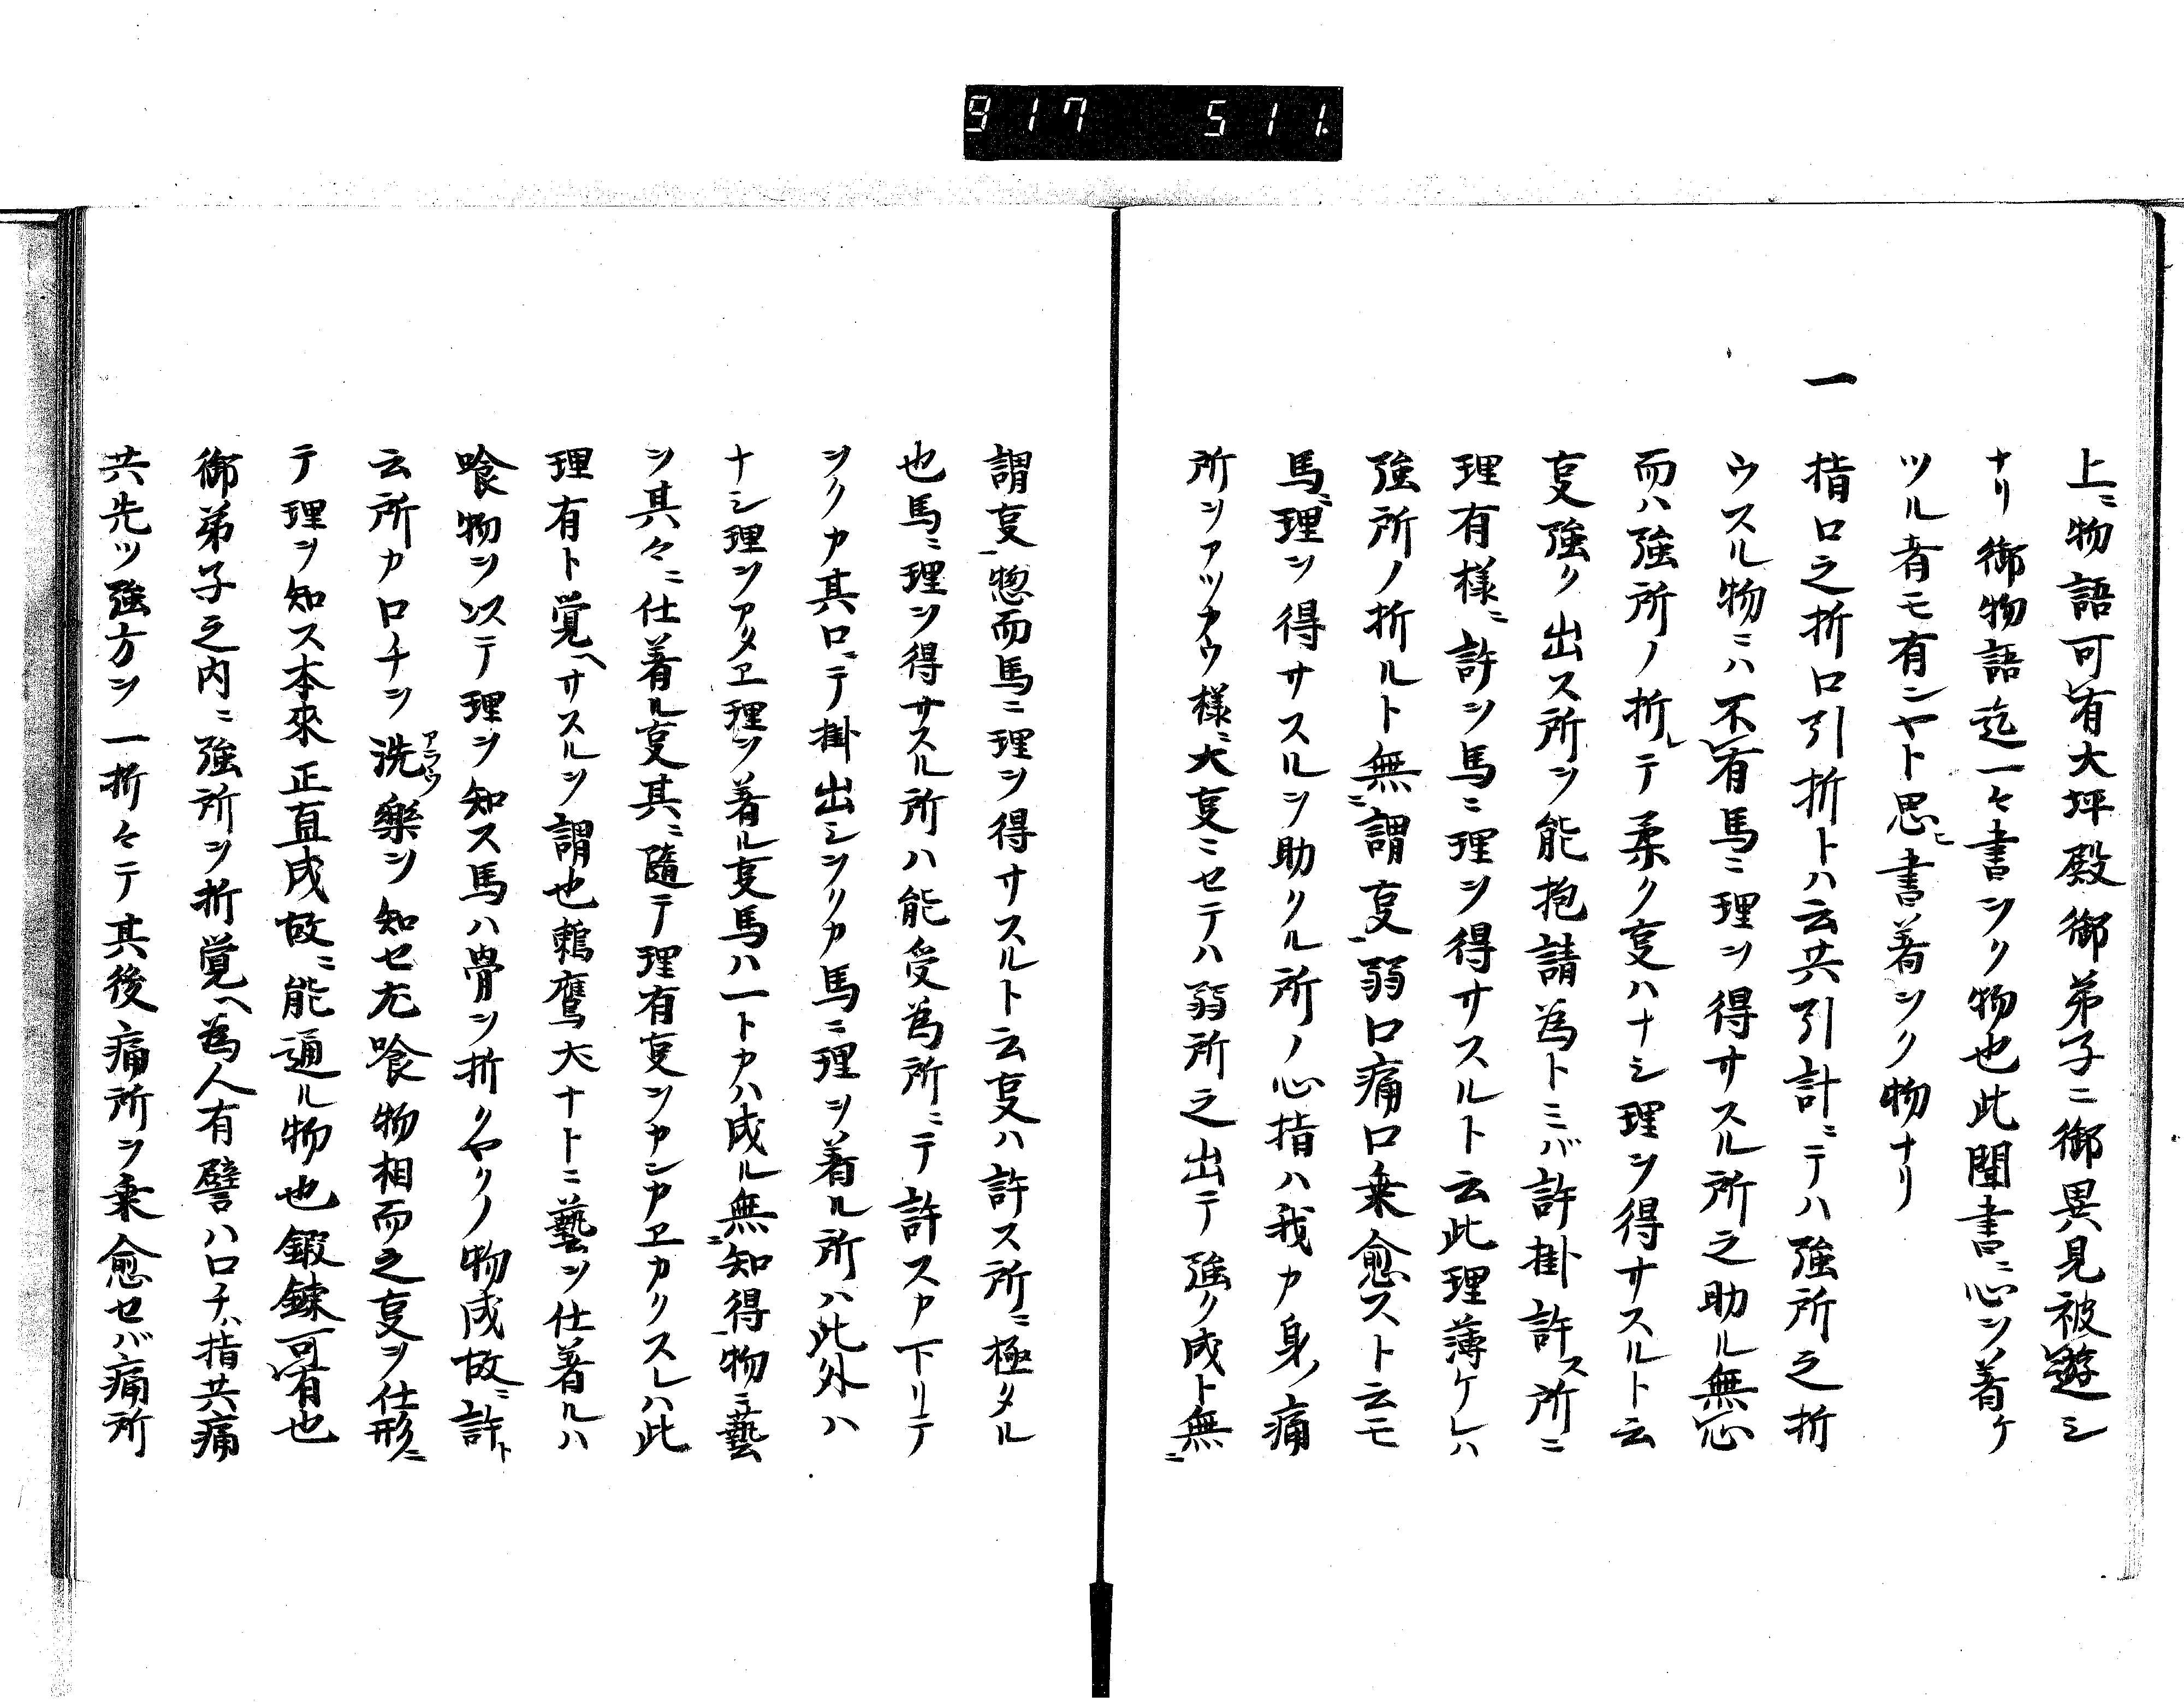 917 511.
上ニ物語可有大坪殿御弟子ニ御異見被遊シ
ナリ御物語迄一々書ヲク物也此聞書ニ心ヲ着ケ
ツル者モ有ンヤト思ヒ書着ヲク物ナリ
一
指口之折口引折トハ云共引計ニテハ強所之折
ウスル物ニハ不有馬ニ理ヲ得サスル所之助ル無心
而ハ強所ノ折ルテ柔ク叓ハナシ理ヲ得サスルト云
叓強ク出ス所ヲ能抱請為トミバ許掛許ス所ニ
理有様ニ許ヲ馬ニ理ヲ得サスルト云此理薄ケレハ
強所ノ折ルト無ニ謂叓一弱口痛口乗愈スト云モ
馬ニ理ヲ得サスルヲ助クル所ノ心指ハ我カ身ノ痛
所ヲアツカウ様ニ大叓ニセテハ弱所之出テ強ク成ト無ニ
謂叓一惣而馬ニ理ヲ得サスルト云叓ハ許ス所ニ極タル
也馬ニ理ヲ得サスル所ハ能受為所ニテ許スカ下リテ
ヲクカ其口ニテ掛出シヲクカ馬ニ理ヲ着ル所ハ此外ハ
ナシ理ヲアタヱ理ヲ着ル叓馬ハ一トカハ成ル無ニ知得一物ニ藝
ヲ其々ニ仕着ル叓其ニ随テ理有叓ヲカンカヱカクスレハ此
理有ト覚ヘサスルヲ謂也鶫鷹犬ナトニ藝ヲ仕着ルハ
喰物ヲ以テ理ヲ知ス馬ハ骨ヲ折クヤクノ物成故ニ許ト
云所カロチヲ洗アラウ樂ヲ知セ尤喰物相而之叓ヲ仕形ニ
テ理ヲ知ス本來正直成故ニ能通ル物也鍛錬可有也
御弟子之内ニ強所ヲ折覚ヘ為人有譬ハロチハ指共痛
共先ツ強方ヲ一折々テ其後痛所ヲ乗愈セバ痛所